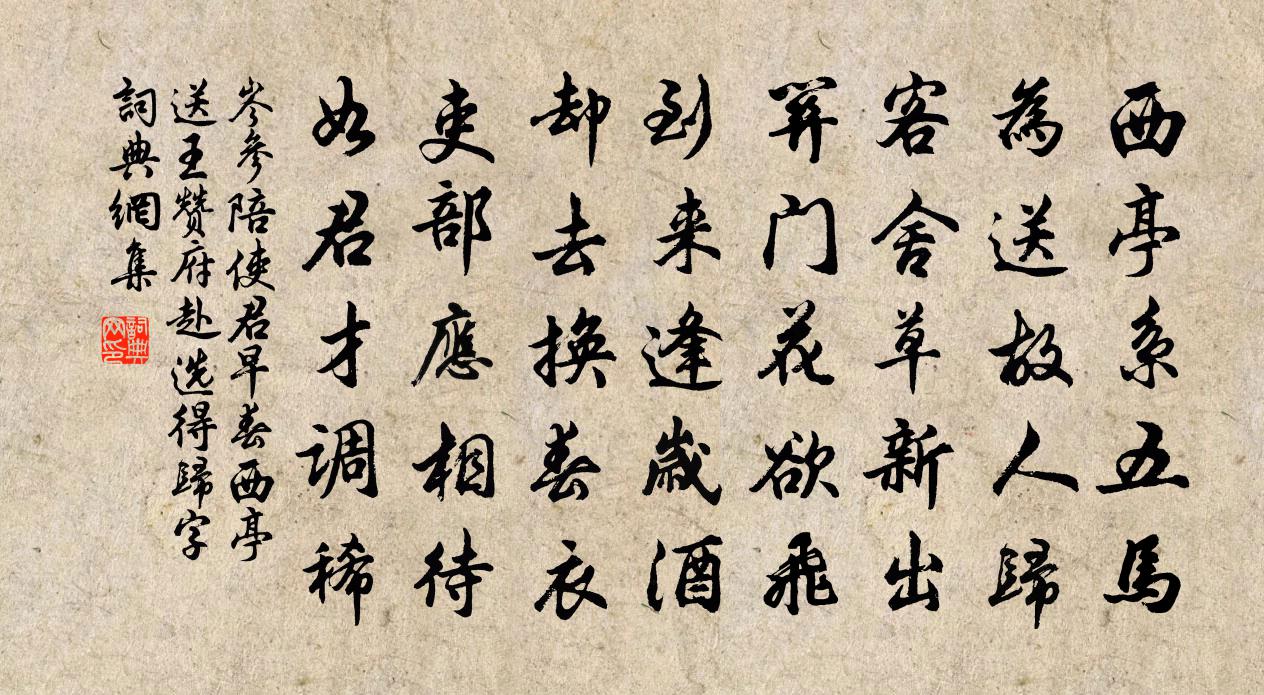 西亭系五馬
為送故人歸
客舍草新出
關門花欲飛
到来逢歲酒
却去換春衣
吏部應相待
如君才調稀
岑參陪使君早春西亭
送王贊府赴选得歸字
詞典網集
詞典網印